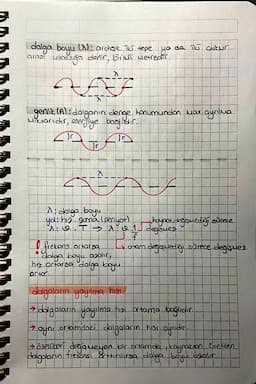 dalga boyu (λ): ardışık iki tepe ya da iki çukur
arası uzaklığa denir, birimi metredir.
λ
λ
genlik (A): dalganın denge konumundan max ayrılma
miktarıdır, enerjiye bağlıdır.
λ
λ: dalga boyu
(periyot)
kaynak değişmediği sürece
λ = ϑ . T → λ = ϑ . 1/f
değişmez
ortam değişmediği sürece değişmez
! frekans artarsa
dalga boyu azalır,
hız artarsa dalga boyu
artar
dalgaların yayılma hızı
→ dalgaların yayılma hızı ortama bağlıdır.
→ aynı ortamdaki dalgaların hızı aynıdır.
→ özellikleri değişmeyen bir ortamda, kaynaktan üretilen
dalgaların frekansı arttırılırsa dalga boyu azalır.